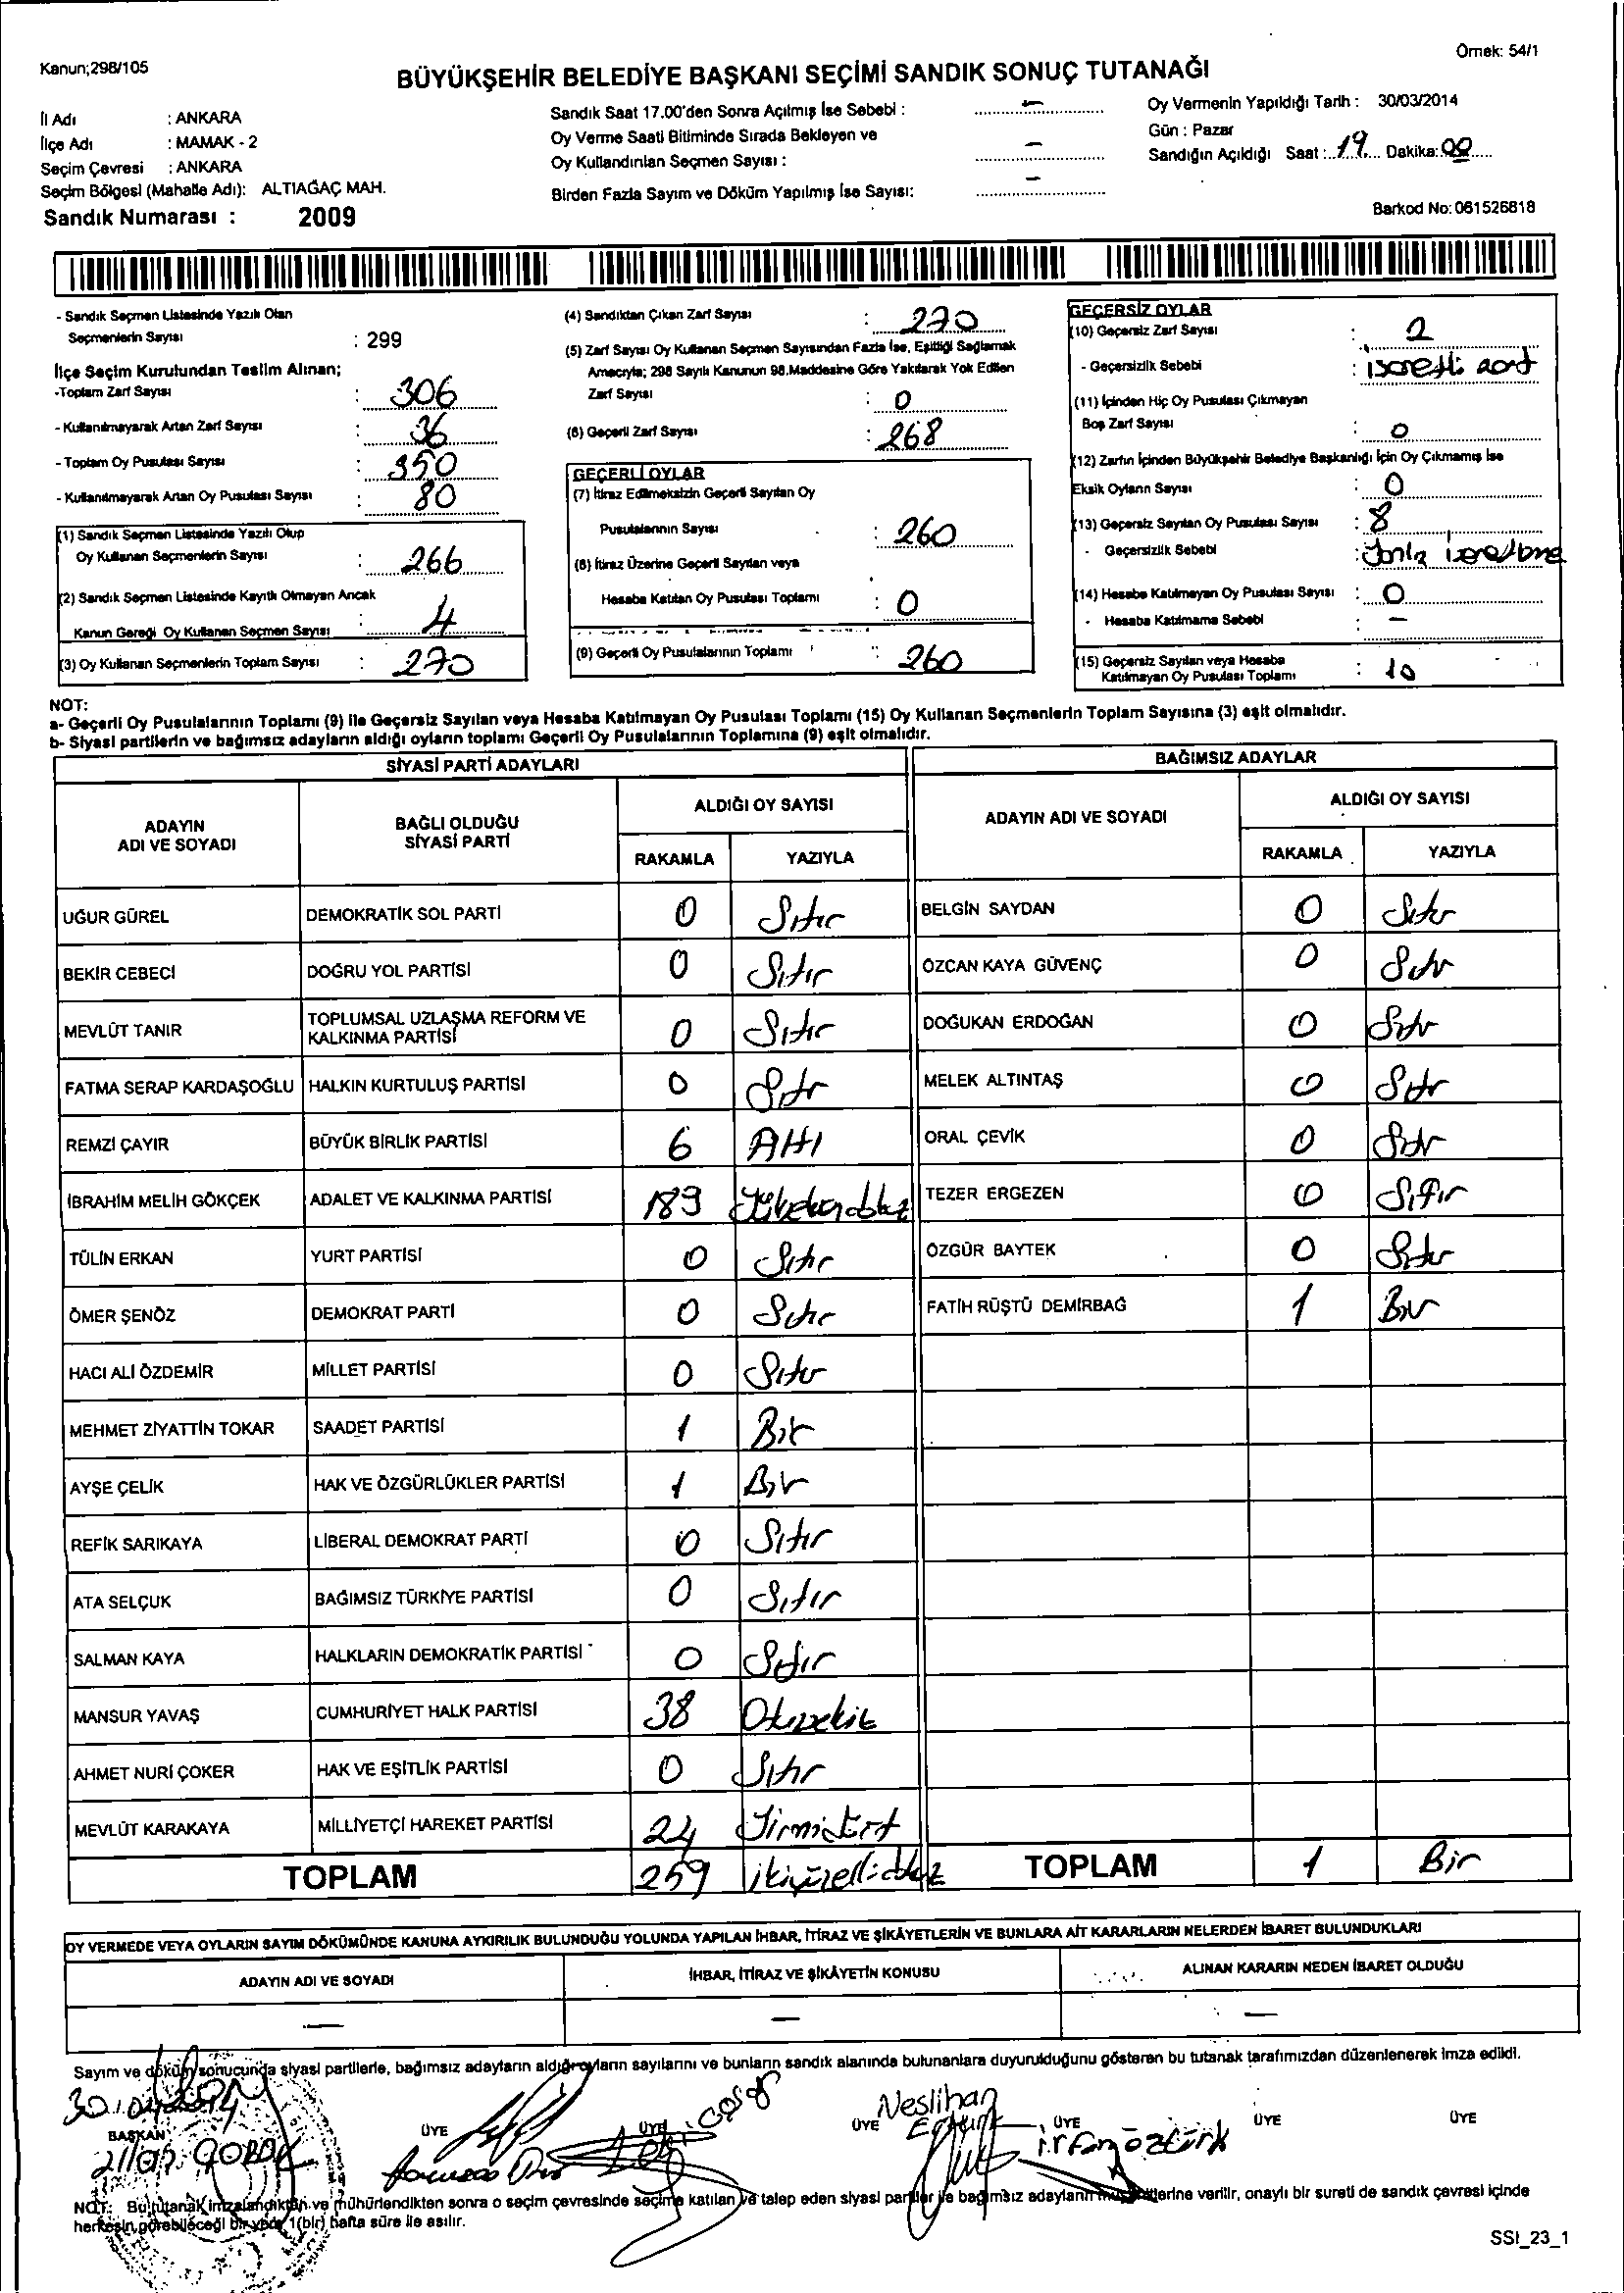 Kanun;298/105
Örnek: 54/1
BÜYÜKŞEHİR BELEDİYE BAŞKANI SEÇİMİ SANDIK SONUÇ TUTANAĞI
İl Adı : ANKARA
İlçe Adı : MAMAK - 2
Seçim Çevresi : ANKARA
Seçim Bölgesi (Mahalle Adı): ALTIAĞAÇ MAH.
Sandık Numarası : 2009
Sandık Saat 17.00'den Sonra Açılmış İse Sebebi : –
Oy Verme Saati Bitiminde Sırada Bekleyen ve
Oy Kullandırılan Seçmen Sayısı : –
Birden Fazla Sayım ve Döküm Yapılmış İse Sayısı: –
Oy Vermenin Yapıldığı Tarih : 30/03/2014
Gün : Pazar
Sandığın Açıldığı Saat : 19 Dakika: 00
Barkod No: 061526818
- Sandık Seçmen Listesinde Yazılı Olan
Seçmenlerin Sayısı : 299
İlçe Seçim Kurulundan Teslim Alınan;
-Toplam Zarf Sayısı : 306
- Kullanılmayarak Artan Zarf Sayısı : 36
- Toplam Oy Pusulası Sayısı : 350
- Kullanılmayarak Artan Oy Pusulası Sayısı : 80
(1) Sandık Seçmen Listesinde Yazılı Olup
Oy Kullanan Seçmenlerin Sayısı : 266
(2) Sandık Seçmen Listesinde Kayıtlı Olmayan Ancak
Kanun Gereği Oy Kullanan Seçmen Sayısı : 4
(3) Oy Kullanan Seçmenlerin Toplam Sayısı : 270
(4) Sandıktan Çıkan Zarf Sayısı : 270
(5) Zarf Sayısı Oy Kullanan Seçmen Sayısından Fazla İse, Eşitliği Sağlamak
Amacıyla; 298 Sayılı Kanunun 98.Maddesine Göre Yakılarak Yok Edilen
Zarf Sayısı : 0
(6) Geçerli Zarf Sayısı : 268
GEÇERLİ OYLAR
(7) İtiraz Edilmeksizin Geçerli Sayılan Oy
Pusulalarının Sayısı : 260
(8) İtiraz Üzerine Geçerli Sayılan veya
Hesaba Katılan Oy Pusulası Toplamı : 0
(9) Geçerli Oy Pusulalarının Toplamı : 260
GEÇERSİZ OYLAR
(10) Geçersiz Zarf Sayısı : 2
- Geçersizlik Sebebi : işaretli zarf
(11) İçinden Hiç Oy Pusulası Çıkmayan
Boş Zarf Sayısı : 0
(12) Zarfın İçinden Büyükşehir Belediye Başkanlığı İçin Oy Çıkmamış İse
Eksik Oyların Sayısı : 0
(13) Geçersiz Sayılan Oy Pusulası Sayısı : 8
- Geçersizlik Sebebi :
(14) Hesaba Katılmayan Oy Pusulası Sayısı : 0
- Hesaba Katılmama Sebebi : –
(15) Geçersiz Sayılan veya Hesaba
Katılmayan Oy Pusulası Toplamı : 10
NOT:
a- Geçerli Oy Pusulalarının Toplamı (9) ile Geçersiz Sayılan veya Hesaba Katılmayan Oy Pusulası Toplamı (15) Oy Kullanan Seçmenlerin Toplam Sayısına (3) eşit olmalıdır.
b- Siyasi partilerin ve bağımsız adayların aldığı oyların toplamı Geçerli Oy Pusulalarının Toplamına (9) eşit olmalıdır.
SİYASİ PARTİ ADAYLARI
ADAYIN ADI VE SOYADI BAĞLI OLDUĞU SİYASİ PARTİ ALDIĞI OY SAYISI
RAKAMLA YAZIYLA
UĞUR GÜREL DEMOKRATİK SOL PARTİ 0 Sıfır
BEKİR CEBECİ DOĞRU YOL PARTİSİ 0 Sıfır
MEVLÜT TANIR TOPLUMSAL UZLAŞMA REFORM VE KALKINMA PARTİSİ 0 Sıfır
FATMA SERAP KARDAŞOĞLU HALKIN KURTULUŞ PARTİSİ 0 Sıfır
REMZİ ÇAYIR BÜYÜK BİRLİK PARTİSİ 6 Altı
İBRAHİM MELİH GÖKÇEK ADALET VE KALKINMA PARTİSİ 189
TÜLİN ERKAN YURT PARTİSİ 0 Sıfır
ÖMER ŞENÖZ DEMOKRAT PARTİ 0 Sıfır
HACI ALİ ÖZDEMİR MİLLET PARTİSİ 0 Sıfır
MEHMET ZİYATTİN TOKAR SAADET PARTİSİ 1 Bir
AYŞE ÇELİK HAK VE ÖZGÜRLÜKLER PARTİSİ 1 Bir
REFİK SARIKAYA LİBERAL DEMOKRAT PARTİ 0 Sıfır
ATA SELÇUK BAĞIMSIZ TÜRKİYE PARTİSİ 0 Sıfır
SALMAN KAYA HALKLARIN DEMOKRATİK PARTİSİ 0 Sıfır
MANSUR YAVAŞ CUMHURİYET HALK PARTİSİ 38 Otuzsekiz
AHMET NURİ ÇOKER HAK VE EŞİTLİK PARTİSİ 0 Sıfır
MEVLÜT KARAKAYA MİLLİYETÇİ HAREKET PARTİSİ 24 Yirmidört
TOPLAM 259 ikiyüzellidokuz
BAĞIMSIZ ADAYLAR
ADAYIN ADI VE SOYADI ALDIĞI OY SAYISI
RAKAMLA YAZIYLA
BELGİN SAYDAN 0 Sıfır
ÖZCAN KAYA GÜVENÇ 0 Sıfır
DOĞUKAN ERDOĞAN 0 Sıfır
MELEK ALTINTAŞ 0 Sıfır
ORAL ÇEVİK 0 Sıfır
TEZER ERGEZEN 0 Sıfır
ÖZGÜR BAYTEK 0 Sıfır
FATİH RÜŞTÜ DEMİRBAĞ 1 Bir
TOPLAM 1 Bir
OY VERMEDE VEYA OYLARIN SAYIM DÖKÜMÜNDE KANUNA AYKIRILIK BULUNDUĞU YOLUNDA YAPILAN İHBAR, İTİRAZ VE ŞİKÂYETLERİN VE BUNLARA AİT KARARLARIN NELERDEN İBARET BULUNDUKLARI
ADAYIN ADI VE SOYADI İHBAR, İTİRAZ VE ŞİKÂYETİN KONUSU ALINAN KARARIN NEDEN İBARET OLDUĞU
— — —
Sayım ve döküm sonucunda siyasi partilerle, bağımsız adayların aldığı oyların sayılarını ve bunların sandık alanında bulunanlara duyurulduğunu gösteren bu tutanak tarafımızdan düzenlenerek imza edildi.
BAŞKAN ÜYE ÜYE ÜYE ÜYE ÜYE ÜYE
Neslihan
irfan öztürk
NOT: Bu tutanak imzalandıktan ve mühürlendikten sonra o seçim çevresinde seçime katılan ve talep eden siyasi partiler ile bağımsız adayların müşahitlerine verilir, onaylı bir sureti de sandık çevresi içinde
herkesin görebileceği bir yere 1(bir) hafta süre ile asılır.
SSI_23_1